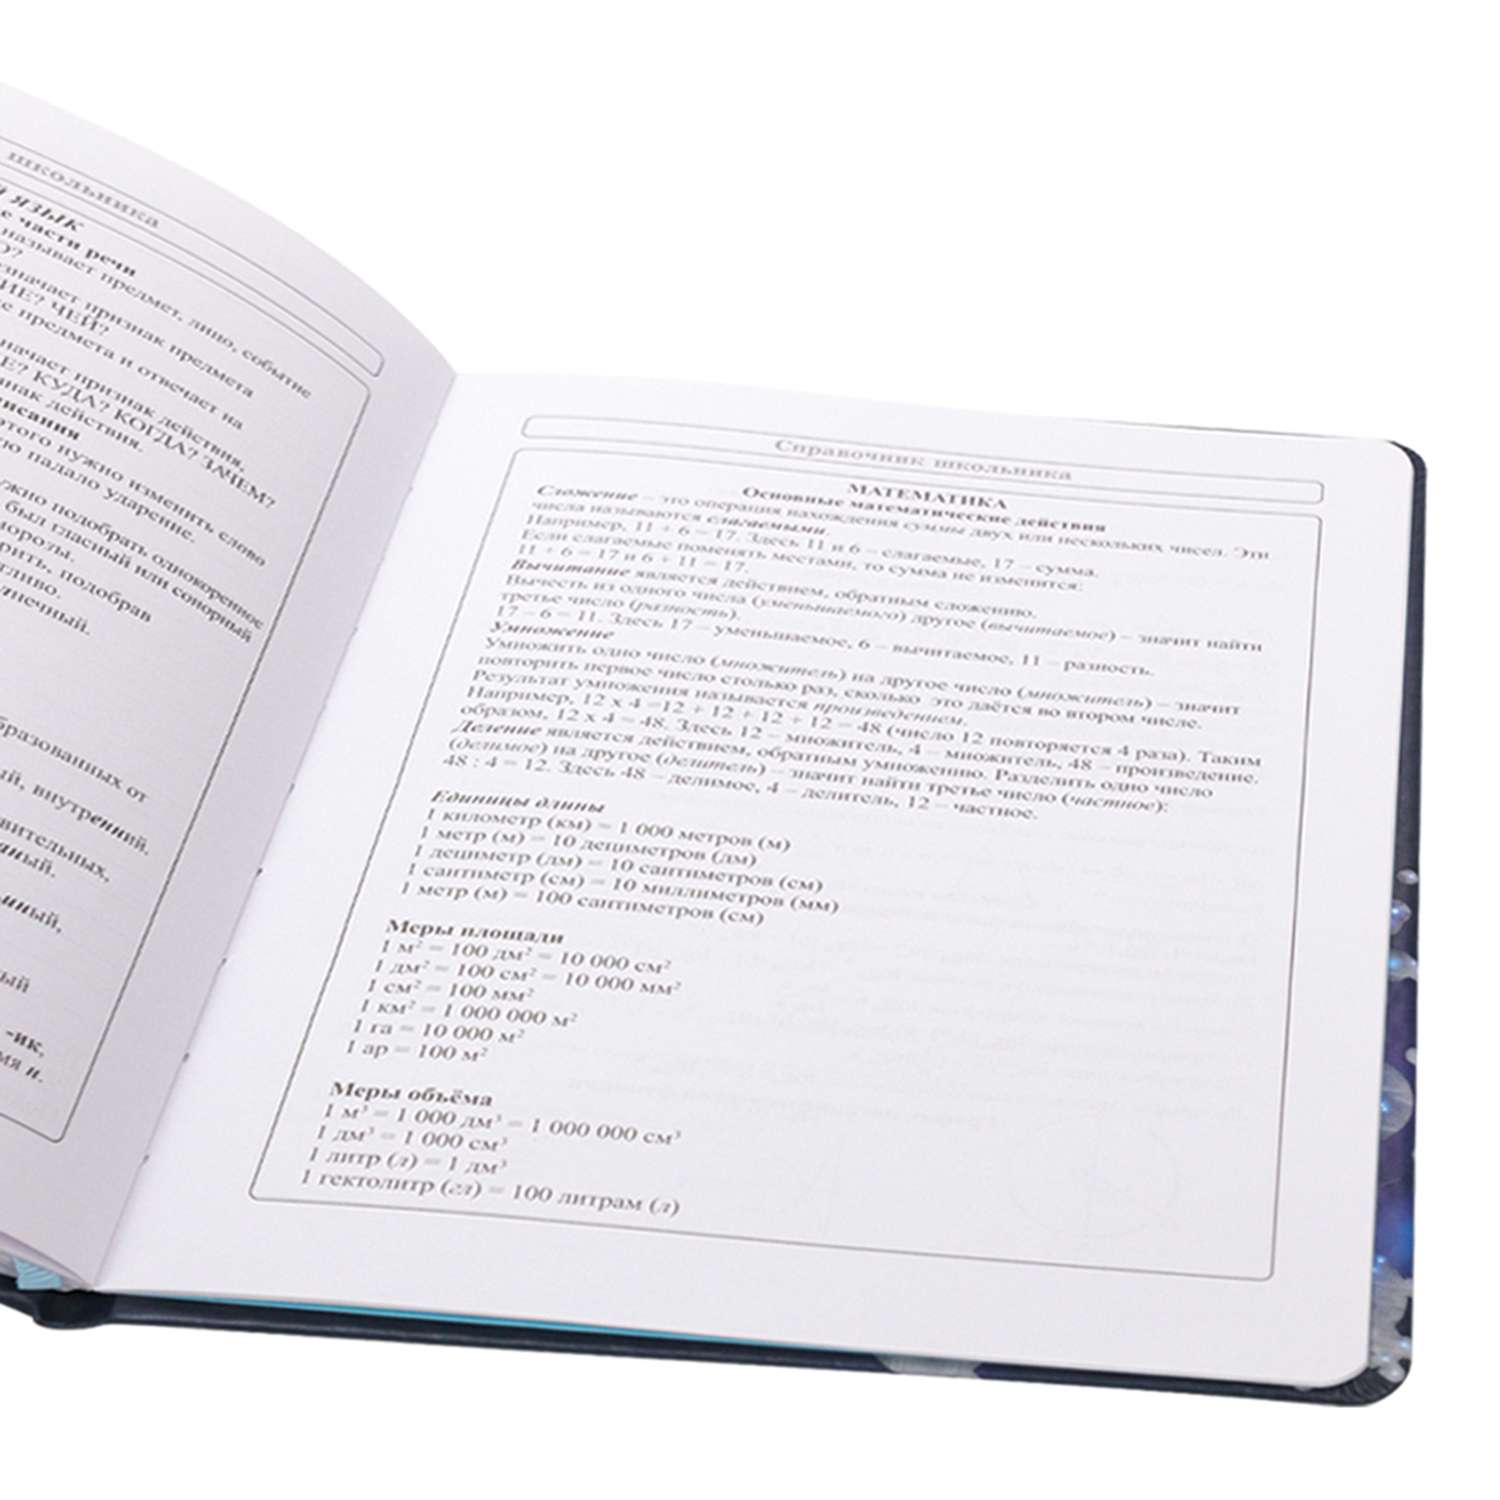 школьника
ЯЗЫК
части речи
называет предмет, лицо, событие
означает признак предмета
ЧЕЙ?
предмета и отвечает на
признак действия,
КУДА? КОГДА? ЗАЧЕМ?
действия.
этого нужно изменить слово
падало ударение.
подобрать однокоренное
был гласный или сонорный
подобрав
образованных от
внутренний.
-ик,
и.
Справочник школьника
МАТЕМАТИКА
Основные математические действия
Сложение – это операция нахождения суммы двух или нескольких чисел. Эти
числа называются слагаемыми.
Например, 11 + 6 = 17. Здесь 11 и 6 – слагаемые, 17 – сумма.
Если слагаемые поменять местами, то сумма не изменится:
11 + 6 = 17 и 6 + 11 = 17.
Вычитание является действием, обратным сложению.
Вычесть из одного числа (уменьшаемого) другое (вычитаемое) – значит найти
третье число (разность).
17 – 6 = 11. Здесь 17 – уменьшаемое, 6 – вычитаемое, 11 – разность.
Умножение
Умножить одно число (множитель) на другое число (множитель) – значит
повторить первое число столько раз, сколько это даётся во втором числе.
Результат умножения называется произведением.
Например, 12 х 4 =12 + 12 + 12 + 12 = 48 (число 12 повторяется 4 раза). Таким
образом, 12 х 4 = 48. Здесь 12 – множитель, 4 – множитель, 48 – произведение.
Деление является действием, обратным умножению. Разделить одно число
(делимое) на другое (делитель) – значит найти третье число (частное):
48 : 4 = 12. Здесь 48 – делимое, 4 – делитель, 12 – частное.
Единицы длины
1 километр (км) = 1 000 метров (м)
1 метр (м) = 10 дециметров (дм)
1 дециметр (дм) = 10 сантиметров (см)
1 сантиметр (см) = 10 миллиметров (мм)
1 метр (м) = 100 сантиметров (см)
Меры площади
1 м² = 100 дм² = 10 000 см²
1 дм² = 100 см² = 10 000 мм²
1 см² = 100 мм²
1 км² = 1 000 000 м²
1 га = 10 000 м²
1 ар = 100 м²
Меры объёма
1 м³ = 1 000 дм³ = 1 000 000 см³
1 дм³ = 1 000 см³
1 литр (л) = 1 дм³
1 гектолитр (гл) = 100 литрам (л)